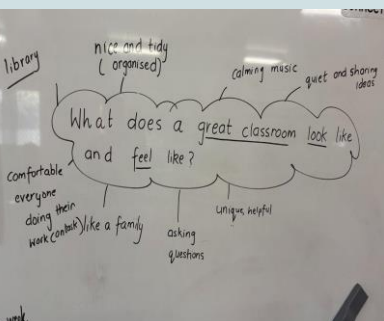 library
nice and tidy
( organised)
calming music
quiet and sharing
ideas
What does a great classroom look like
and feel like?
comfortable
everyone
doing their
work (ontask)
like a family
asking
questions
unique, helpful
week